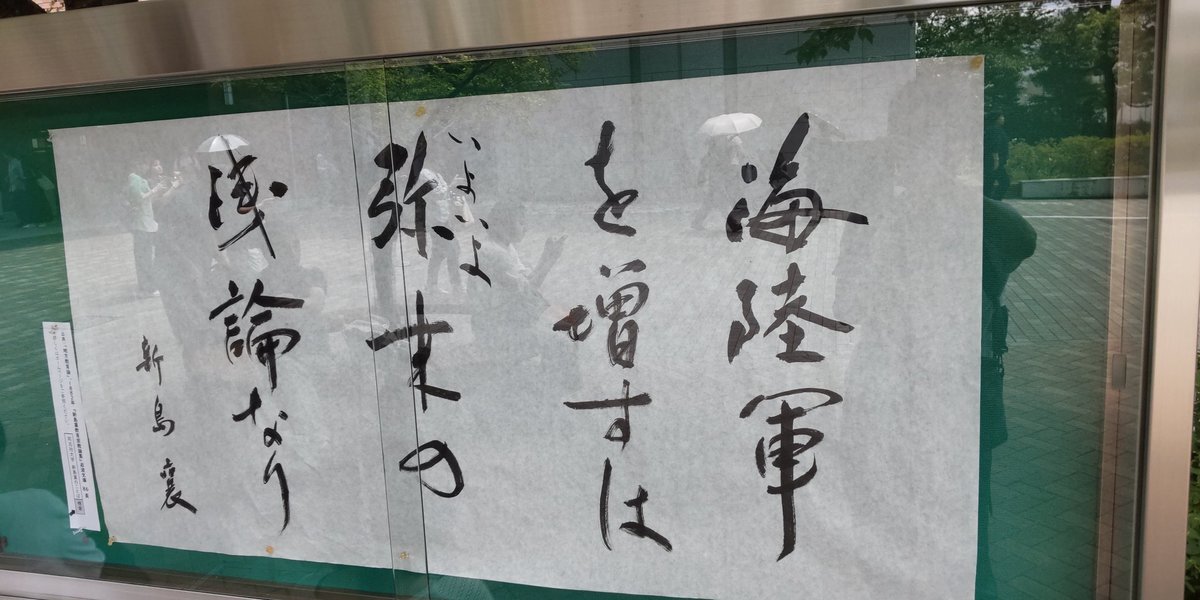 海陸軍
を増すは
いよいよ
弥末の
浅論なり
新島襄